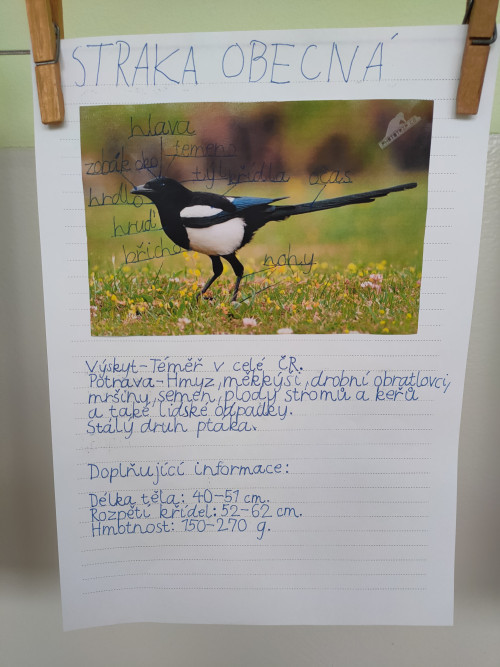 STRAKA OBECNÁ
hlava
temeno
zobák oko
týl křídla ocas
hrdlo
hruď
břicho
nohy
Výskyt-Téměř v celé ČR.
Potrava-Hmyz, měkkýši, drobní obratlovci,
mršiny, semen, plody stromů a keřů
a také lidské odpadky.
Stálý druh ptáka.
Doplňující informace:
Délka těla: 40-51 cm.
Rozpětí křídel: 52-62 cm.
Hmotnost: 150-270 g.